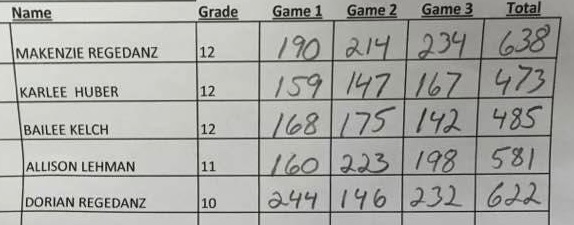 Name Grade Game 1 Game 2 Game 3 Total
MAKENZIE REGEDANZ 12 190 214 234 638
KARLEE HUBER 12 159 147 167 473
BAILEE KELCH 12 168 175 142 485
ALLISON LEHMAN 11 160 223 198 581
DORIAN REGEDANZ 10 244 146 232 622